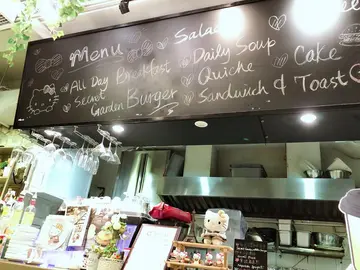 Menu
All Day Breakfast
Secret
Garden Burger
Salad
Daily Soup
Quiche
Cake
Sandwich & Toast